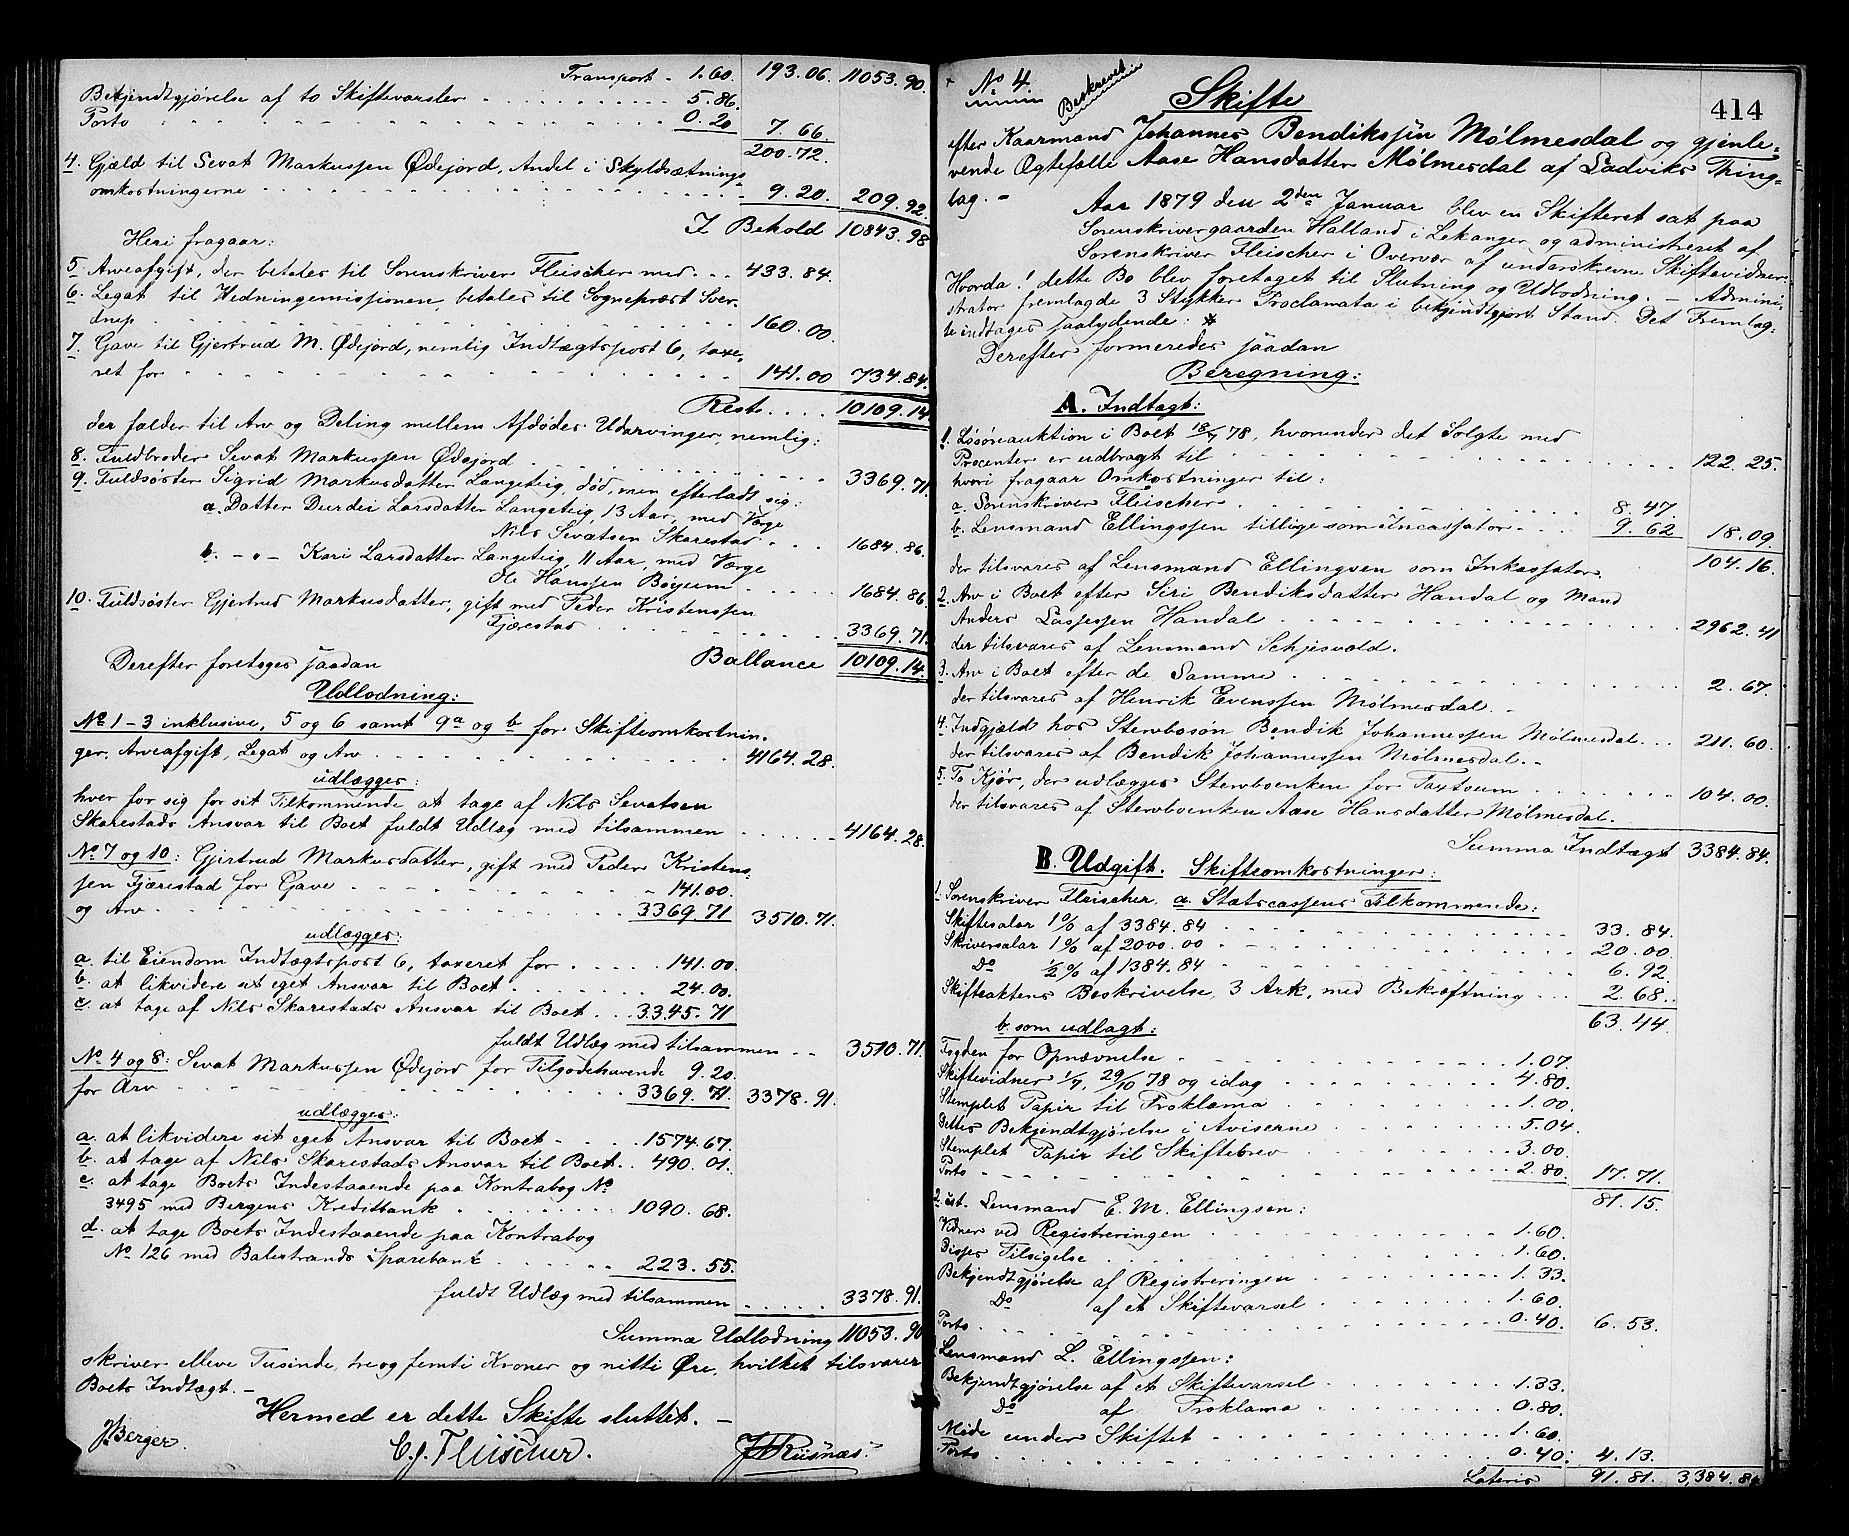 Transport - 1.60. 193.06. 11053.90.
Bekjendtgjørelse af to Skiftevarsler . . . . . 5.86.
Porto . . . . . 0.20 7.66.
200.72.
4. Gjæld til Sevat Markussen Ødejord, Andel i Skyldsætnings-
omkostningerne . . . . . 9.20. 209.92.
I Behold 10843.98
Heri fragaar:
5. Arveafgift, der betales til Sorenskriver Fleischer med . . . 433.84.
6. Legat til Hedningemissionen, betales til Sogneprest Sver-
drup . . . . . 160.00.
7. Gave til Gjertrud M. Ødejord, nemlig Indtægtspost 6, taxe-
ret for . . . . . 141.00 734.84.
Rest . . . . 10109.14
der falder til Arv og Deling mellem Afdødes Udarvinger, nemlig:
8. Fuldbroder Sevat Markussen Ødejord . . . . . 3369.71.
9. Fuldsøster Sigrid Markusdatter Langeteig, død, men efterladt sig:
a. Datter Durdei Larsdatter Langeteig, 13 Aar, med Værge
Nils Sevatsen Skarestad . . . 1684.86.
b. - " - Kari Larsdatter Langeteig, 11 Aar, med Værge
Ole Hanssen Bøyum . . . . . 1684.86.
10. Fuldsøster Gjertrud Markusdatter, gift med Peder Kristenssen
Fjærestad . . . . . 3369.71.
Derefter foretoges saadan Ballance 10109.14.
Udlodning:
No 1-3 inklusive, 5 og 6 samt 9a og b for Skifteomkostnin-
ger, Arveafgift, Legat og Arv . . . . . 4164.28.
udlægges:
hver for sig for sit Tilkommende at tage af Nils Sevatsen
Skarestads Ansvar til Boet fuldt Udlæg med tilsammen . . . . . 4164.28.
No 7 og 10: Gjertrud Markusdatter, gift med Peder Kristens-
sen Fjærestad for Gave . . . . . 141.00.
og Arv . . . . . 3369.71 3510.71.
udlægges:
a. til Eiendom Indtægtspost 6, taxeret for . . . . . 141.00.
b. at likvidere sit eget Ansvar til Boet . . . . . 24.00.
c. at tage af Nils Skarestads Ansvar til Boet . . . 3345.71
fuldt Udlæg med tilsammen . . 3510.71.
No 4 og 8: Sevat Markussen Ødejord for Tilgodehavende 9.20.
for Arv . . . . . 3369.71. 3378.91.
udlægges:
a. at likvidere sit eget Ansvar til Boet . . . . . 1574.67.
b. at tage af Nils Skarestads Ansvar til Boet . . 490.01.
c. at tage Boets Indestaaende paa Kontrabog No
3495 med Bergens Kreditbank . . . . . 1090.68.
d. at tage Boets Indestaaende paa Kontrabog
No 126 med Balestrands Sparebank . . . . . 223.55.
fuldt Udlæg med tilsammen . . . . . 3378.91.
Summa Udlodning 11053.90
skriver elleve Tusinde, tre og femti Kroner og nitti Øre, hvilket tilsvarer
Boets Indtægt. -
Hermed er dette Skifte sluttet. -
J. Berger. C. J. Fleischer. J Riisnæs.
No 4. Beskrevet Skifte 414
efter Kaarmand Johannes Bendikssøn Mølmesdal og gjenle-
vende Ægtefælle Aase Hansdatter Mølmesdal af Ladviks Thing-
lag. -
Aar 1879 den 2den Januar blev en Skifteret sat paa
Sorenskrivergaarden Halland i Lekanger og administreret af
Sorenskriver Fleischer i Overvær af underskrevne Skiftevidner.
Hvorda! dette Bo blev foretaget til Slutning og Udlodning. - Admini-
strator fremlagde 3 Stykker Proclamata i bekjendtgjort Stand. Det Fremlag-
te indtages saalydende: *
Derefter formeredes saadan
Beregning:
A. Indtægt:
1. Løsøreauktion i Boet 18/7 78, hvorunder det Solgte med
Procenter er udbragt til . . . . . 122.25.
hvori fragaar Omkostninger til:
a. Sorenskriver Fleischer . . . . . 8.47.
b. Lensmand Ellingssen tillige som Incassator . . 9.62 18.09.
der tilsvares af Lensmand Ellingsen som Inkassator. 104.16.
2. Arv i Boet efter Siri Bendiksdatter Handal og Mand
Anders Lassesen Handal . . . . . 2962.41
der tilsvares af Lensmand Schjesvold.
3. Arv i Boet efter de Samme . . . . . 2.67.
der tilsvares af Henrik Evenssen Mølmesdal. -
4. Indgjæld hos Stervbosøn Bendik Johannessen Mølmesdal . . . 211.60.
der tilsvares af Bendik Johannessen Mølmesdal. -
5. To Kjør, der udlægges Stervboenken for Taxtsum . . . . . 104.00.
der tilsvares af Stervboenken Aase Hansdatter Mølmesdal.
Summa Indtægt 3384.84.
B. Udgift. Skifteomkostninger:
1. Sorenskriver Fleischer, a. Statscassens Tilkommende:
Skiftesalar 1% af 3384.84 . . . . . 33.84.
Skriversalar 1% af 2000.00 . . . . . 20.00.
Do ½% af 1384.84 . . . . . 6.92.
Skifteaktens Beskrivelse, 3 Ark, med Bekræftning . . . 2.68.
63.44.
b. som udlagt:
Fogden for Opnævnelse . . . . . 1.07.
Skiftevidner 1/7, 29/10 78 og idag . . . . . 4.80.
Stemplet Papir til Proklama . . . . . 1.00.
Dettes Bekjendtgjørelse i Aviserne . . . . . 5.04.
Stemplet Papir til Skiftebrev . . . . . 3.00.
Porto . . . . . 2.80. 17.71.
81.15.
2. Lensmand E. M. Ellingsen:
Vidner ved Registreringen . . . . . 1.60.
Disses Tilsigelse . . . . . 1.60.
Bekjendtgjørelse af Registreringen . . . . . 1.33.
Do af et Skiftevarsel . . . . . 1.60.
Porto . . . . . 0.40. 6.53.
Lensmand L. Ellingssen:
Bekjendtgjørelse af et Skiftevarsel . . . . . 1.33.
Do af Proklama . . . . . 0.80.
Møde under Skiftet . . . . . 1.60.
Porto . . . . . 0.40: 4.13.
Lateris 91.81. 3,384.84